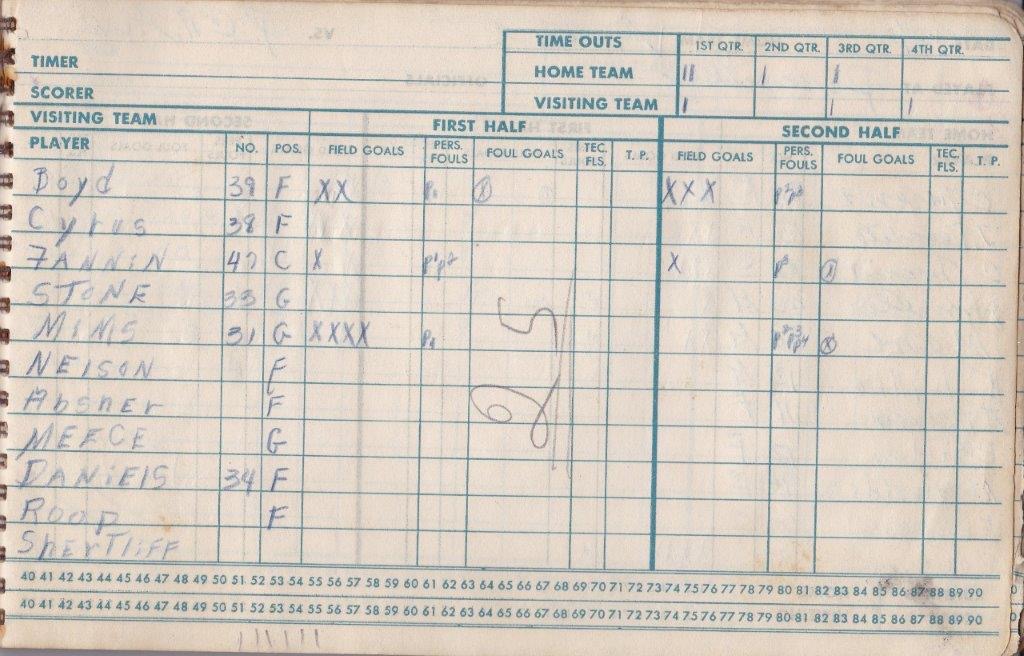 TIME OUTS 1ST QTR. 2ND QTR. 3RD QTR. 4TH QTR.
TIMER
HOME TEAM II I I
SCORER
VISITING TEAM I I I
VISITING TEAM FIRST HALF SECOND HALF
PLAYER NO. POS. FIELD GOALS PERS. FOULS FOUL GOALS TEC. FLS. T. P. FIELD GOALS PERS. FOULS FOUL GOALS TEC. FLS. T. P.
Boyd 39 F XX P1 X XXX P2P3
Cyrus 38 F
FANNIN 47 C X P1P2 X P3
STONE 33 G
MIMS 31 G XXXX P1 P2P3P4 X
NElSON F
Absher F
MEECE G
DANiElS 34 F
ROOP F
SherTliFF
25
40 41 42 43 44 45 46 47 48 49 50 51 52 53 54 55 56 57 58 59 60 61 62 63 64 65 66 67 68 69 70 71 72 73 74 75 76 77 78 79 80 81 82 83 84 85 86 87 88 89 90
40 41 42 43 44 45 46 47 48 49 50 51 52 53 54 55 56 57 58 59 60 61 62 63 64 65 66 67 68 69 70 71 72 73 74 75 76 77 78 79 80 81 82 83 84 85 86 87 88 89 90